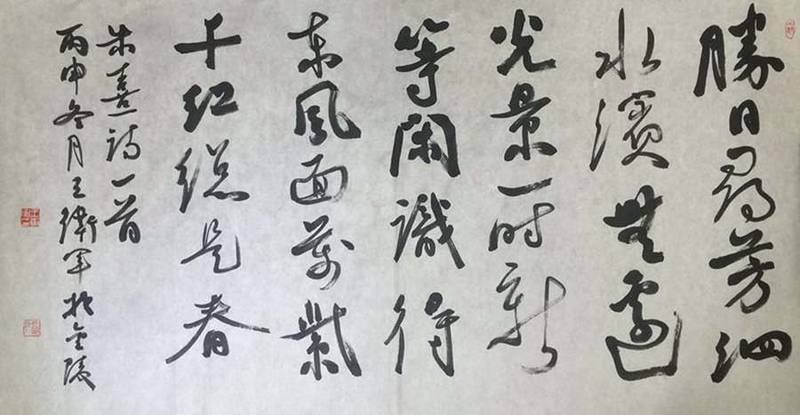 勝日尋芳泗
水濱無邊
光景一時新
等閑識得
東風面萬紫
千紅總是春
朱熹詩一首
丙申冬月王衛軍於金陵